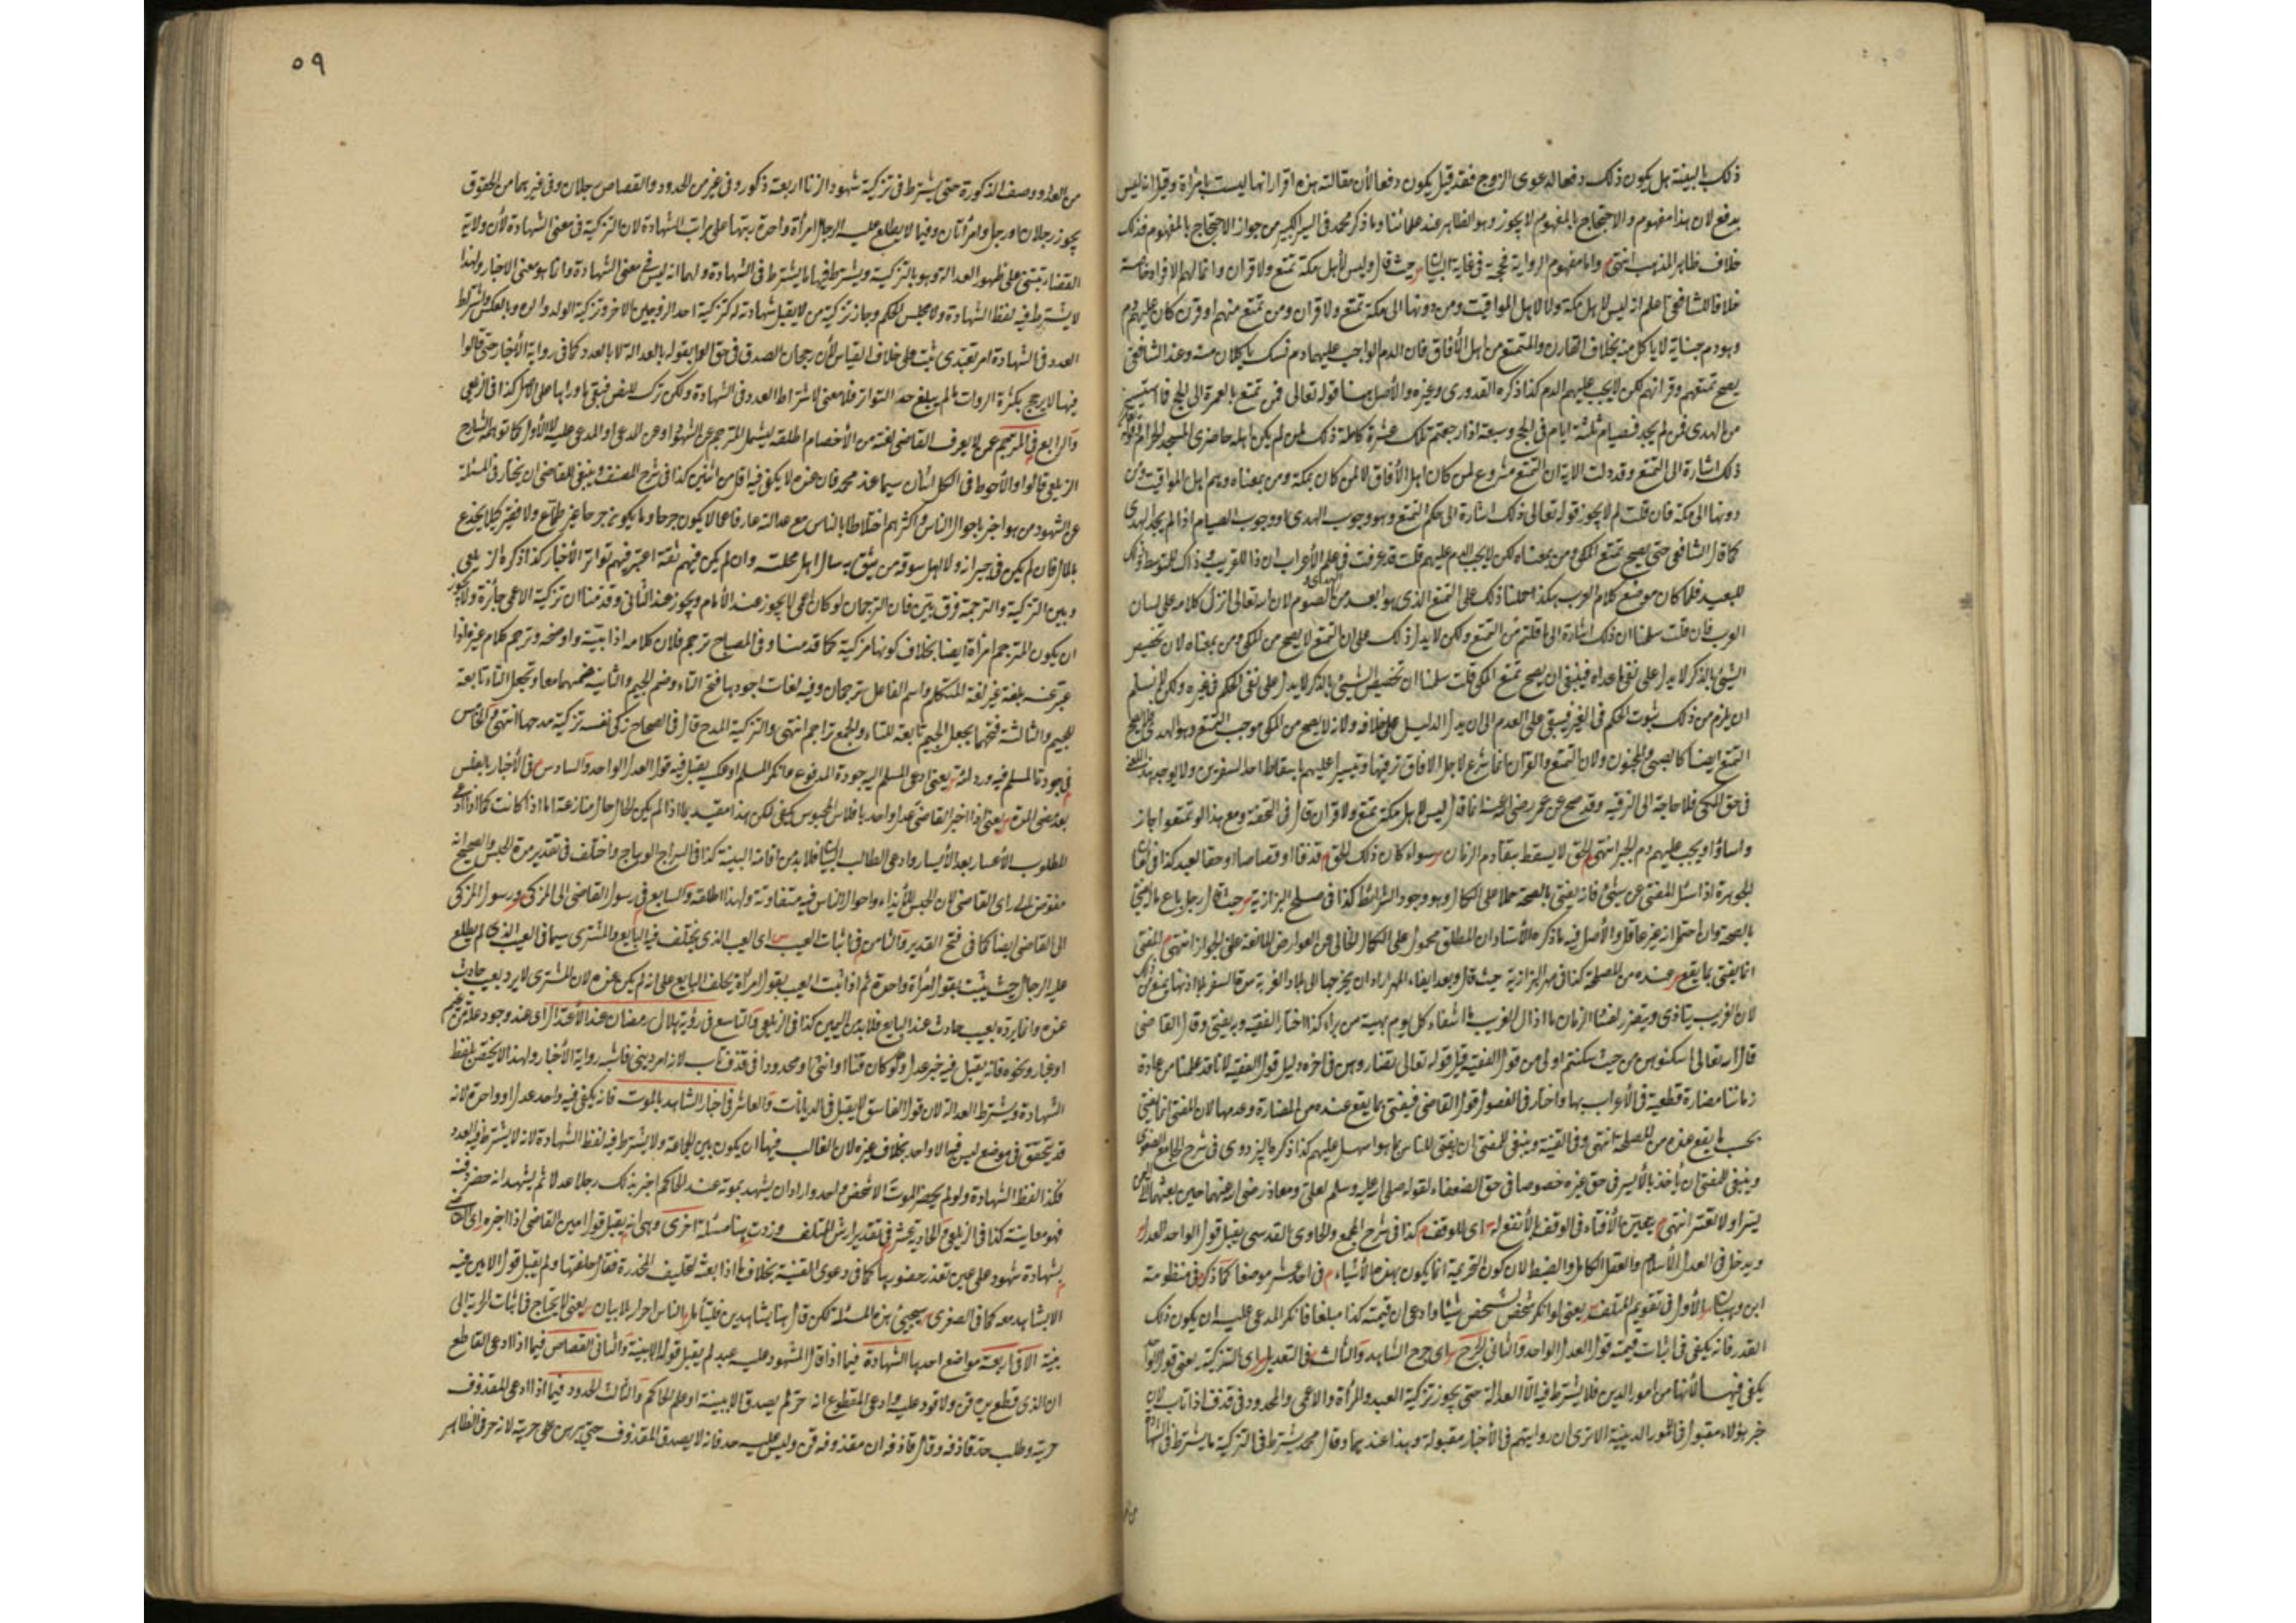 ذلك بالبينة هل يكون ذلك دفعا لدعوى الزوج فقد قيل يكون دفعا لأن مقالته هذه اقرار انها ليست بامرأة وقيل انه ليس
بدفع لان هذا مفهوم والاحتجاج بالمفهوم لا يجوز وهو الظاهر عند علمائنا وما ذكر محمد فى السير الكبير من جواز الاحتجاج بالمفهوم فذلك
خلاف ظاهر المذهب انتهى واما مفهوم الرواية فحجة فى غاية البيان حيث قال وليس لأهل مكة تمتع ولا قران وانما لهم الافراد خاصة
خلافا للشافعى اعلم انه ليس لاهل مكة ولا لاهل المواقيت ومن دونها الى مكة تمتع ولا قران ومن تمتع منهم او قرن كان عليه دم
وهو دم جناية لا ياكل منه بخلاف القارن والمتمتع من اهل الأفاق فان الدم الواجب عليهما دم نسك ياكلان منه وعند الشافعى
يصح تمتعهم وقرانهم لكن لا يجب عليهم الدم كذا ذكره القدورى وغيره والأصل هنا قوله تعالى فمن تمتع بالعمرة الى الحج فما استيسر
من الهدى فمن لم يجد فصيام ثلثة ايام فى الحج وسبعة اذا رجعتم تلك عشرة كاملة ذلك لمن لم يكن اهله حاضرى المسجد الحرام
ذلك اشارة الى التمتع وقد دلت الاية ان التمتع مشروع لمن كان اهل الأفاق لا لمن كان بمكة ومن بمعناه وهم اهل المواقيت ومن
دونها الى مكة فان قلت لم لا يجوز قوله تعالى ذلك اشارة الى حكم التمتع وهو وجوب الهدى او وجوب الصيام اذا لم يجد الهدى
كما قال الشافعى حتى يصح تمتع المكى ومن بمعناه لكن لا يجب الدم عليهم قلت قد عرفت فى علم الأعراب ان ذا للقريب وذاك للمتوسط وذلك
للبعيد فلما كان موضع كلام العرب هكذا حملنا ذلك على التمتع الذى هو ابعد من الهدى و الصوم لان الله تعالى انزل كلامه على لسان
العرب فان قلت سلمنا ان ذلك اشارة الى ما قلتم من التمتع ولكن لا يدل ذلك على ان التمتع لا يصح من المكى ومن بمعناه لان تخصيص
الشيئ بالذكر لا يدل على نفى ما عداه فينبغى ان يصح تمتع المكى قلت سلمنا ان تخصيص الشيئ بالذكر لا يدل على نفى الحكم فى غيره ولكن لا نسلم
ان يلزم من ذلك ثبوت الحكم فى الغير فيبقى على العدم الى ان يدل الدليل على خلافه ولانه لا يصح من المكى موجب التمتع وهو الهدى فلا يصح
التمتع ايضا كالصبى والمجنون ولان التمتع والقران انما شرع لاجل الافاق ترفيها وتيسيرا عليهم باسقاط احد السفرين ولا يوجد هذا المعنى
فى حق المكى فلا حاجة الى الترفيه وقد صح عن عمر رضى الله عنه انه قال ليس لاهل مكة تمتع ولا قران قال فى التحفة ومع هذا لو تمتعوا جاز
واساؤا ويجب عليهم دم الجبر انتهى الحق لا يسقط بتقادم الزمان سواء كان ذلك الحق قذفا او قصاصا او حقا لعبد كذا فى لعان
الجوهرة اذا سئل المفتى عن شيئ فانه يفتى بالصحة حملا على الكمال وهو وجود الشرائط كذا فى صلح البزازية حيث قال رجل باع
بالصحة وان احتمل انه غير عاقل والأصل فيه ما ذكره الأستاد ان المطلق محمول على الكمال الخالى عن العوارض المانعة على الجواز انتهى المفتى
انما يفتى بما يقع عنده من المصلحة كذا فى مهر البزازية حيث قال وبعد ايفاء المهر اراد ان يخرجها الى بلاد الغربة من السفر بلا اذنها يمنع من ذلك
لان الغريب يتاذى ويتضرر لفساد الزمان ما اذل الغريب ما اشقاه كل يوم يهينه من يراه كذا اختار الفقيه وبه يفتى وقال القاضى
قال الله تعالى اسكنوهن من حيث سكنتم اولى من قول الفقيه قيل قوله تعالى لا تضاروهن فى اخره دليل قول الفقيه لانا قد علمنا من عادة
زماننا مضارة قطعية فى الأعراب بها واختار فى الفصول قول القاضى فيفتى بما يقع عنده من المضارة وعدمها لان المفتى انما يفتى
بحسب ما يقع عنده من المصلحة انتهى وفى القنية وينبغى للمفتى ان يفتى للناس بما هو اسهل عليهم كذا ذكره البزدوى فى شرح الجامع الصغير
وينبغى للمفتى ان يأخذ بالأيسر فى حق غيره خصوصا فى حق الضعفاء لقوله صلى الله عليه وسلم لعلى ومعاذ رضى الله عنهما حين بعثهما الى اليمن
يسرا ولا تعسرا انتهى يتعين الأفتاء فى الوقف بالأنفع له اى للوقف كذا فى شرح المجمع والحاوى القدسى يقبل قول الواحد العدل
ويدخل فى العدل الأسلام والعقل الكامل والضبط لان كون الخبر حجة انما يكون بهذه الأشياء فى احد عشر موضعا كما ذكره فى منظومة
ابن وهبان الأول فى تقويم المتلف يعنى لو انكر شخص لشخص شيئا وادعى ان قيمته كذا مبلغا فانكر المدعى عليه ان يكون ذلك
القدر فانه يكفى فى اثبات قيمته قول العدل الواحد والثانى الجرح اى جرح الشاهد والثالث فى التعديل اى التزكية يعنى قول الواحد
يكفى فيها لأنها من امور الدين فلا يشترط فيه الا العدالة حتى يجوز تزكية العبد والمرأة والاعمى والمحدود فى قذف اذا تاب لان
خبر هؤلاء مقبول فى الأمور الدينية الا ترى ان روايتهم فى الأخبار مقبولة وهذا عندهما وقال محمد يشترط فى التزكية ما يشترط فى الشهادة
٥٩
من العدد ووصف الذكورة حتى يشترط فى تزكية شهود الزنا اربعة ذكور وفى غيره من الحدود والقصاص رجلان وفى غيرهما من الحقوق
يجوز رجلان او رجل وامرأتان وفيما لا يطلع عليه الرجال امرأة واحدة رتبها على مراتب الشهادة لان التزكية فى معنى الشهادة لأن ولاية
القضاء تبتنى على ظهور العدالة وهو بالتزكية ويشترط فيها ما يشترط فى الشهادة ولهما انه ليس فى معنى الشهادة وانما هو معنى الاخبار ولهذا
لا يشترط فيه لفظ الشهادة ولا مجلس الحكم وجاز تزكية من لا يقبل شهادته له كتزكية احد الزوجين الاخر وتزكية الولد والده وبالعكس واشتراط
العدد فى الشهادة امر تعبدى ثبت على خلاف القياس لأن رجحان الصدق فى حق العمل بقوله بالعدالة لا بالعدد كما فى رواية الأخبار حتى قالوا
فيها لا يرجح بكثرة الروات ما لم يبلغ حد التواتر فلا معنى لاشتراط العدد فى الشهادة ولكن ترك للنص فبقى ما وراءها على الأصل كذا فى الزيلعى
والرابع فى المترجم عمن لا يعرف القاضى لغته من الأخصام اطلقه ليشمل المترجم عن الشهود او عن المدعى او المدعى عليه لا الأول كما توهمه الشارح
الزيلعى قالوا والأحوط فى الكل اثنان سيما عند محمد فان عنده لا يكفى فيه اقل من اثنين كذا فى شرح المصنف وينبغى للقاضى ان يختار فى المسئلة
عن الشهود من هو اخبر باحوال الناس واكثرهم اختلاطا بالناس مع عدالته عارفا بما لا يكون جرحا وما يكون جرحا غير طماع ولا فقير كيلا يخدع
بالمال فان لم يكن فى جيرانه ولا اهل سوقه من يثق به سال اهل محلته وان لم يكن فيهم ثقة اعتبر فيهم تواتر الأخبار كذا ذكره الزيلعى
وبين التزكية والترجمة فرق بين فان الترجمان لو كان اعمى لا يجوز عند الأمام ويجوز عند الثانى وقد منا ان تزكية الاعمى جائزة ولا يجوز
ان يكون المترجم امرأة ايضا بخلاف كونها مزكية كما قدمنا وفى المصباح ترجم فلان كلامه اذا بينه واوضحه وترجم كلام غيره اذا
عبر عنه بلغة غير لغة المتكلم واسم الفاعل ترجمان وفيه لغات اجودها فتح التاء وضم الجيم والثانية ضمهما معا وتجعل التاء تابعة
للجيم والثالثة فتحهما بجعل الجيم تابعة للتاء والجمع تراجم انتهى والتزكية المدح قال فى الصحاح زكى نفسه تزكية مدحها انتهى والخامس
فى جودة المسلم فيه وردائته يعنى ادعى المسلم اليه جودة المدفوع وانكر المسلم او عكسه يقبل فيه قول العدل الواحد والسادس فى الأخبار بالفلس
بعد مضى المدة يعنى اذا اخبر القاضى عدل واحد بافلاس المحبوس يكفى لكن هذا مقيد بما اذا لم يكن الحال حال منازعة اما اذا كانت كما اذا ادعى
المطلوب الأعسار بعد الأيسار وادعى الطالب اليسار فلا بد من اقامة البينة كذا فى السراج الوهاج واختلف فى تقدير مدة الحبس والصحيح انه
مفوض الى راى القاضى لان الحبس للأيذاء واحوال الناس فيه متفاوتة ولهذا اطلقه والسابع فى رسول القاضى الى المزكى ورسول المزكى
الى القاضى ايضا كما فى فتح القدير والثامن فى اثبات العيب اى العيب الذى يختلف فيه البايع والمشترى سيما فى العيب الذى لم يطلع
عليه الرجال حيث يثبت بقول امرأة واحدة ثم اذا ثبت العيب بقول امرأة يحلف البايع على انه لم يكن عنده لان المشترى لا يرد بعيب حادث
عنده وانما يرده بعيب حادث عند البايع فلا بد من اليمين كذا فى الزيلعى والتاسع فى رؤية هلال رمضان عند الأعتلال اى عند وجود علة من غيم
او غبار ونحوه فانه يقبل فيه خبر عدل ولو كان قنا او انثى او محدودا فى قذف تاب لانه امر دينى فاشبه رواية الأخبار ولهذا لا يختص بلفظ
الشهادة ويشترط العدالة لان قول الفاسق لا يقبل فى الديانات والعاشر فى اخبار الشاهد بالموت فانه يكفى فيه واحد عدل او واحدة لانه
قد يتحقق فى موضع ليس فيه الا واحد بخلاف غيره لان الغالب فيها ان يكون بين الجماعة ولا يشترط فيه لفظ الشهادة لانه لا يشترط فيه العدد
فكذا لفظ الشهادة ولو لم يحضر الموت الا شخص واحد واراد ان يشهد بموته عند الحاكم اخبر بذلك رجلا عدلا ثم يشهد انه حضر دفنه
فهو معاينة كذا فى الزيلعى والحادى عشر فى تقدير ارش المتلف وزدت هنا مسئلة اخرى وهى انه يقبل قول امين القاضى اذا اخبره اى القاضى
بشهادة شهود على عين تعذر حضورها كما فى دعوى القنية بخلاف ما اذا بعثه لتحليف المخدرة فقال حلفتها ولم يقبل قول الامين فيه
الا بشاهد معه كما فى الصغرى سيجيئ هذه المسئلة لكن قال هنا بشاهدين فليتأمل الناس احرار بلا بيان يعنى لا يحتاج فى اثبات الحرية الى
بينة الا فى اربعة مواضع احدها الشهادة فيما اذا قال المشهود عليه عبد لم يقبل قوله الا ببينة والثانى القصاص فيما اذا ادعى القاطع
ان الذى قطع يده قن ولا قود عليه وادعى المقطوع انه حر لم يصدق الا ببينة او علم الحاكم والثالث الحدود فيما اذا ادعى المقذوف
حريته وطلب حد قاذفه وقال قاذفه ان مقذوفه قن وليس عليه حد فانه لا يصدق المقذوف حتى يبرهن على حريته لانه حر فى الظاهر